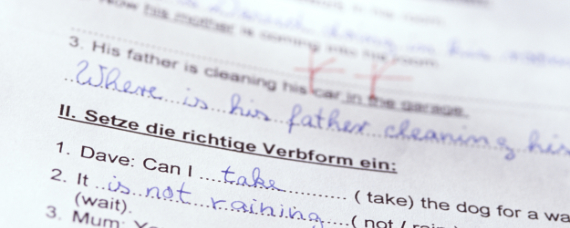 his mother is coming into his room.
3. His father is cleaning his car in the garage.
Where is his father cleaning his
II. Setze die richtige Verbform ein:
1. Dave: Can I ....take.............. ( take) the dog for a wa
2. It ..is not raining....( not /
(wait).
3. Mum: